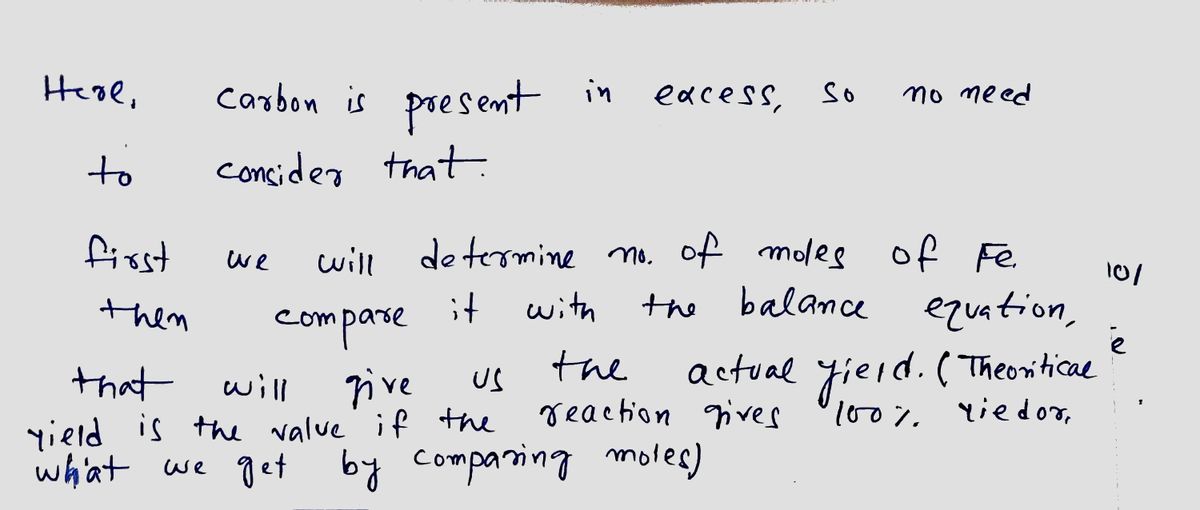 Here, carbon is present in excess, so no need
to consider that.
first we will determine no. of moles of Fe.
then compare it with the balance equation,
that will give us the actual yield. (Theoritical
yield is the value if the reaction gives 100%. yiedor,
what we get by comparing moles)